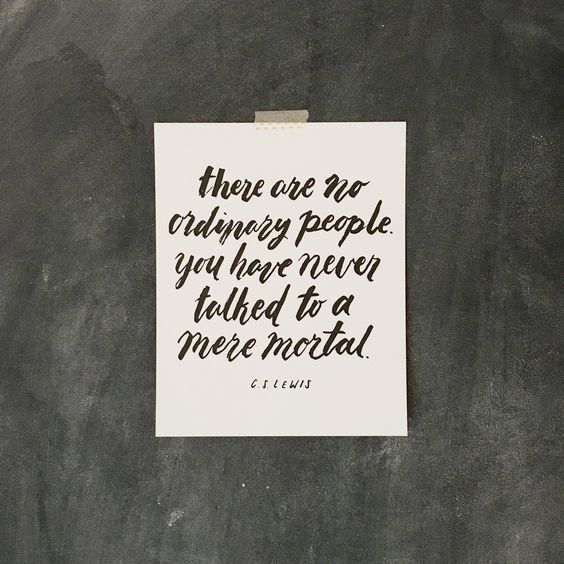 there are no
ordinary people.
you have never
talked to a
mere mortal.
C.S. LEWIS